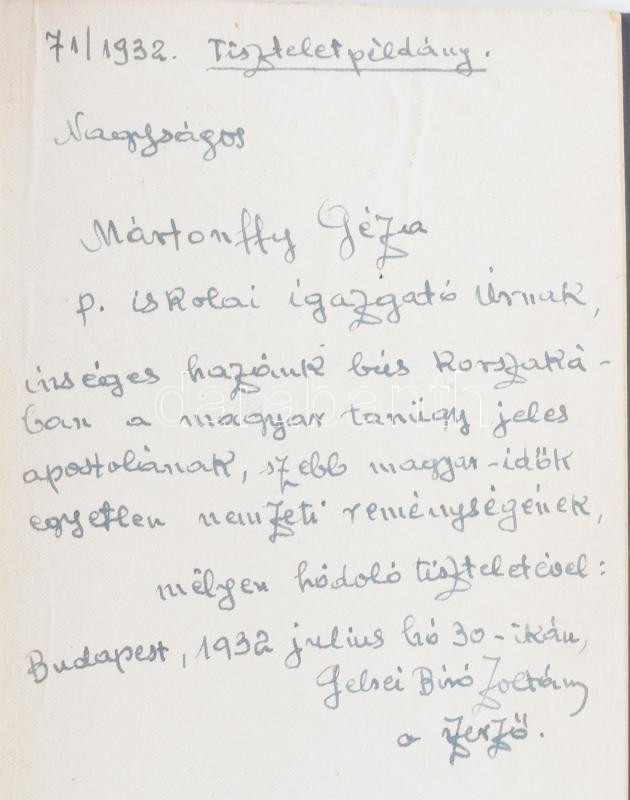 71/1932. Tiszteletpéldány.
Nagyságos
Mártonffy Géza
p. iskolai igazgató Úrnak,
ínséges hazánk bús korszaká-
ban a magyar tanügy jeles
apostolának, szebb magyar-idők
egyetlen nemzeti reménységének,
mélyen hódoló tiszteletével:
Budapest, 1932 július hó 30-ikán,
Gelsei Bíró Zoltán
a szerző.
darabanth